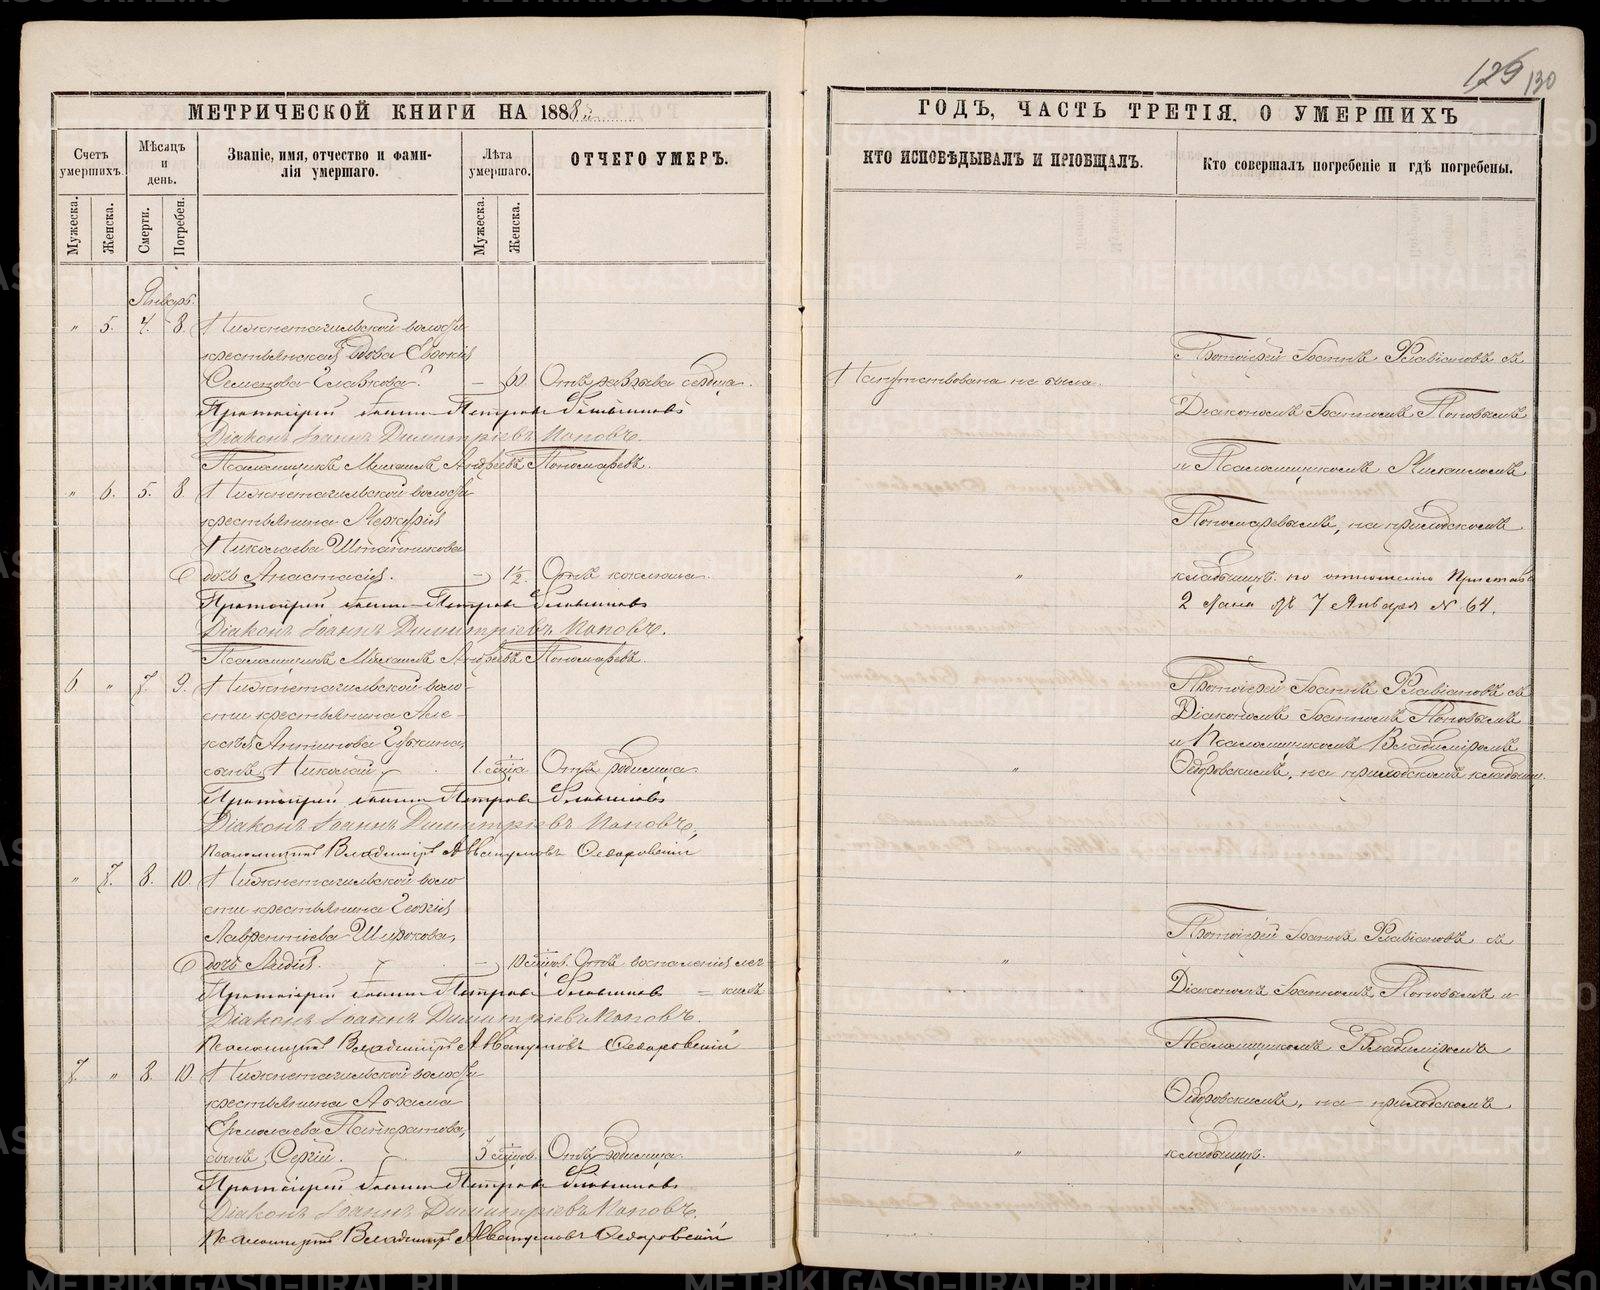 129 130
МЕТРИЧЕСКОЙ КНИГИ НА 1888й
Счетъ умершихъ.
Мѣсяцъ и день.
Званіе, имя, отчество и фами-
лія умершаго.
Лѣта умершаго.
ОТЧЕГО УМЕРЪ.
Мужеска.
Женска.
Смерти.
Погребен.
Мужеска.
Женска.
Январь.
" 5. 4. 8. Нижнетагильской волости
крестьянская вдова Евдокія
Семенова - 60 Отъ разрыва сердца.
Протоіерей Іоаннъ Петровъ
Діаконъ Іоаннъ Димитріевъ Поповъ.
Псаломщикъ Михаилъ Андреевъ Пономаревъ.
" 6. 5. 8. Нижнетагильской волости
крестьянина Меркурія
Николаева
дочь Анастасія. - 1½. Отъ коклюша.
Протоіерей Іоаннъ Петровъ
Діаконъ Іоаннъ Димитріевъ Поповъ.
Псаломщикъ Михаилъ Андреевъ Пономаревъ.
6 " 7. 9. Нижнетагильской воло-
сти крестьянина Але-
ксѣя Антипова
сынъ Николай 1. Отъ родимца.
Протоіерей Іоаннъ Петровъ
Діаконъ Іоаннъ Димитріевъ Поповъ,
Псаломщикъ Владиміръ Аввакумовъ Ѳедоровскій
" 7. 8. 10. Нижнетагильской воло
сти крестьянина Георгія
Лаврентіева Широкова,
дочь Лидія. - 10 Отъ воспаленія лег-
Протоіерей Іоаннъ Петровъ = кихъ
Діаконъ Іоаннъ Димитріевъ Поповъ.
Псаломщикъ Владиміръ Аввакумовъ Ѳедоровскій
7. " 8. 10. Нижнетагильской волости
крестьянина Абрама
Ермолаева Панкратова,
сынъ Сергій. 3 Отъ родимца.
Протоіерей Іоаннъ Петровъ
Діаконъ Іоаннъ Димитріевъ Поповъ.
Псаломщикъ Владиміръ Аввакумовъ Ѳедоровскій
ГОДЪ, ЧАСТЬ ТРЕТІЯ. О УМЕРШИХЪ
КТО ИСПОВѢДЫВАЛЪ И ПРІОБЩАЛЪ.
Кто совершалъ погребеніе и гдѣ погребены.
Напутствована не была.
Протоіерей Іоаннъ Флавіановъ съ
Діакономъ Іоанномъ Поповымъ
и Псаломщикомъ Михаиломъ
Пономаревымъ, на приходскомъ
" кладбищѣ. по отношенію Пристава
2 Стана отъ 7 Января № 64.
Протоіерей Іоаннъ Флавіановъ съ
Діакономъ Іоанномъ Поповымъ
и Псаломщикомъ Владиміромъ
" Ѳедоровскимъ, на приходскомъ кладбищѣ.
Протоіерей Іоаннъ Флавіановъ съ
"
Діакономъ Іоанномъ Поповымъ и
Псаломщикомъ Владиміромъ
Ѳедоровскимъ, на приходскомъ
" кладбищѣ.
METRIKI.GASO-URAL.RU